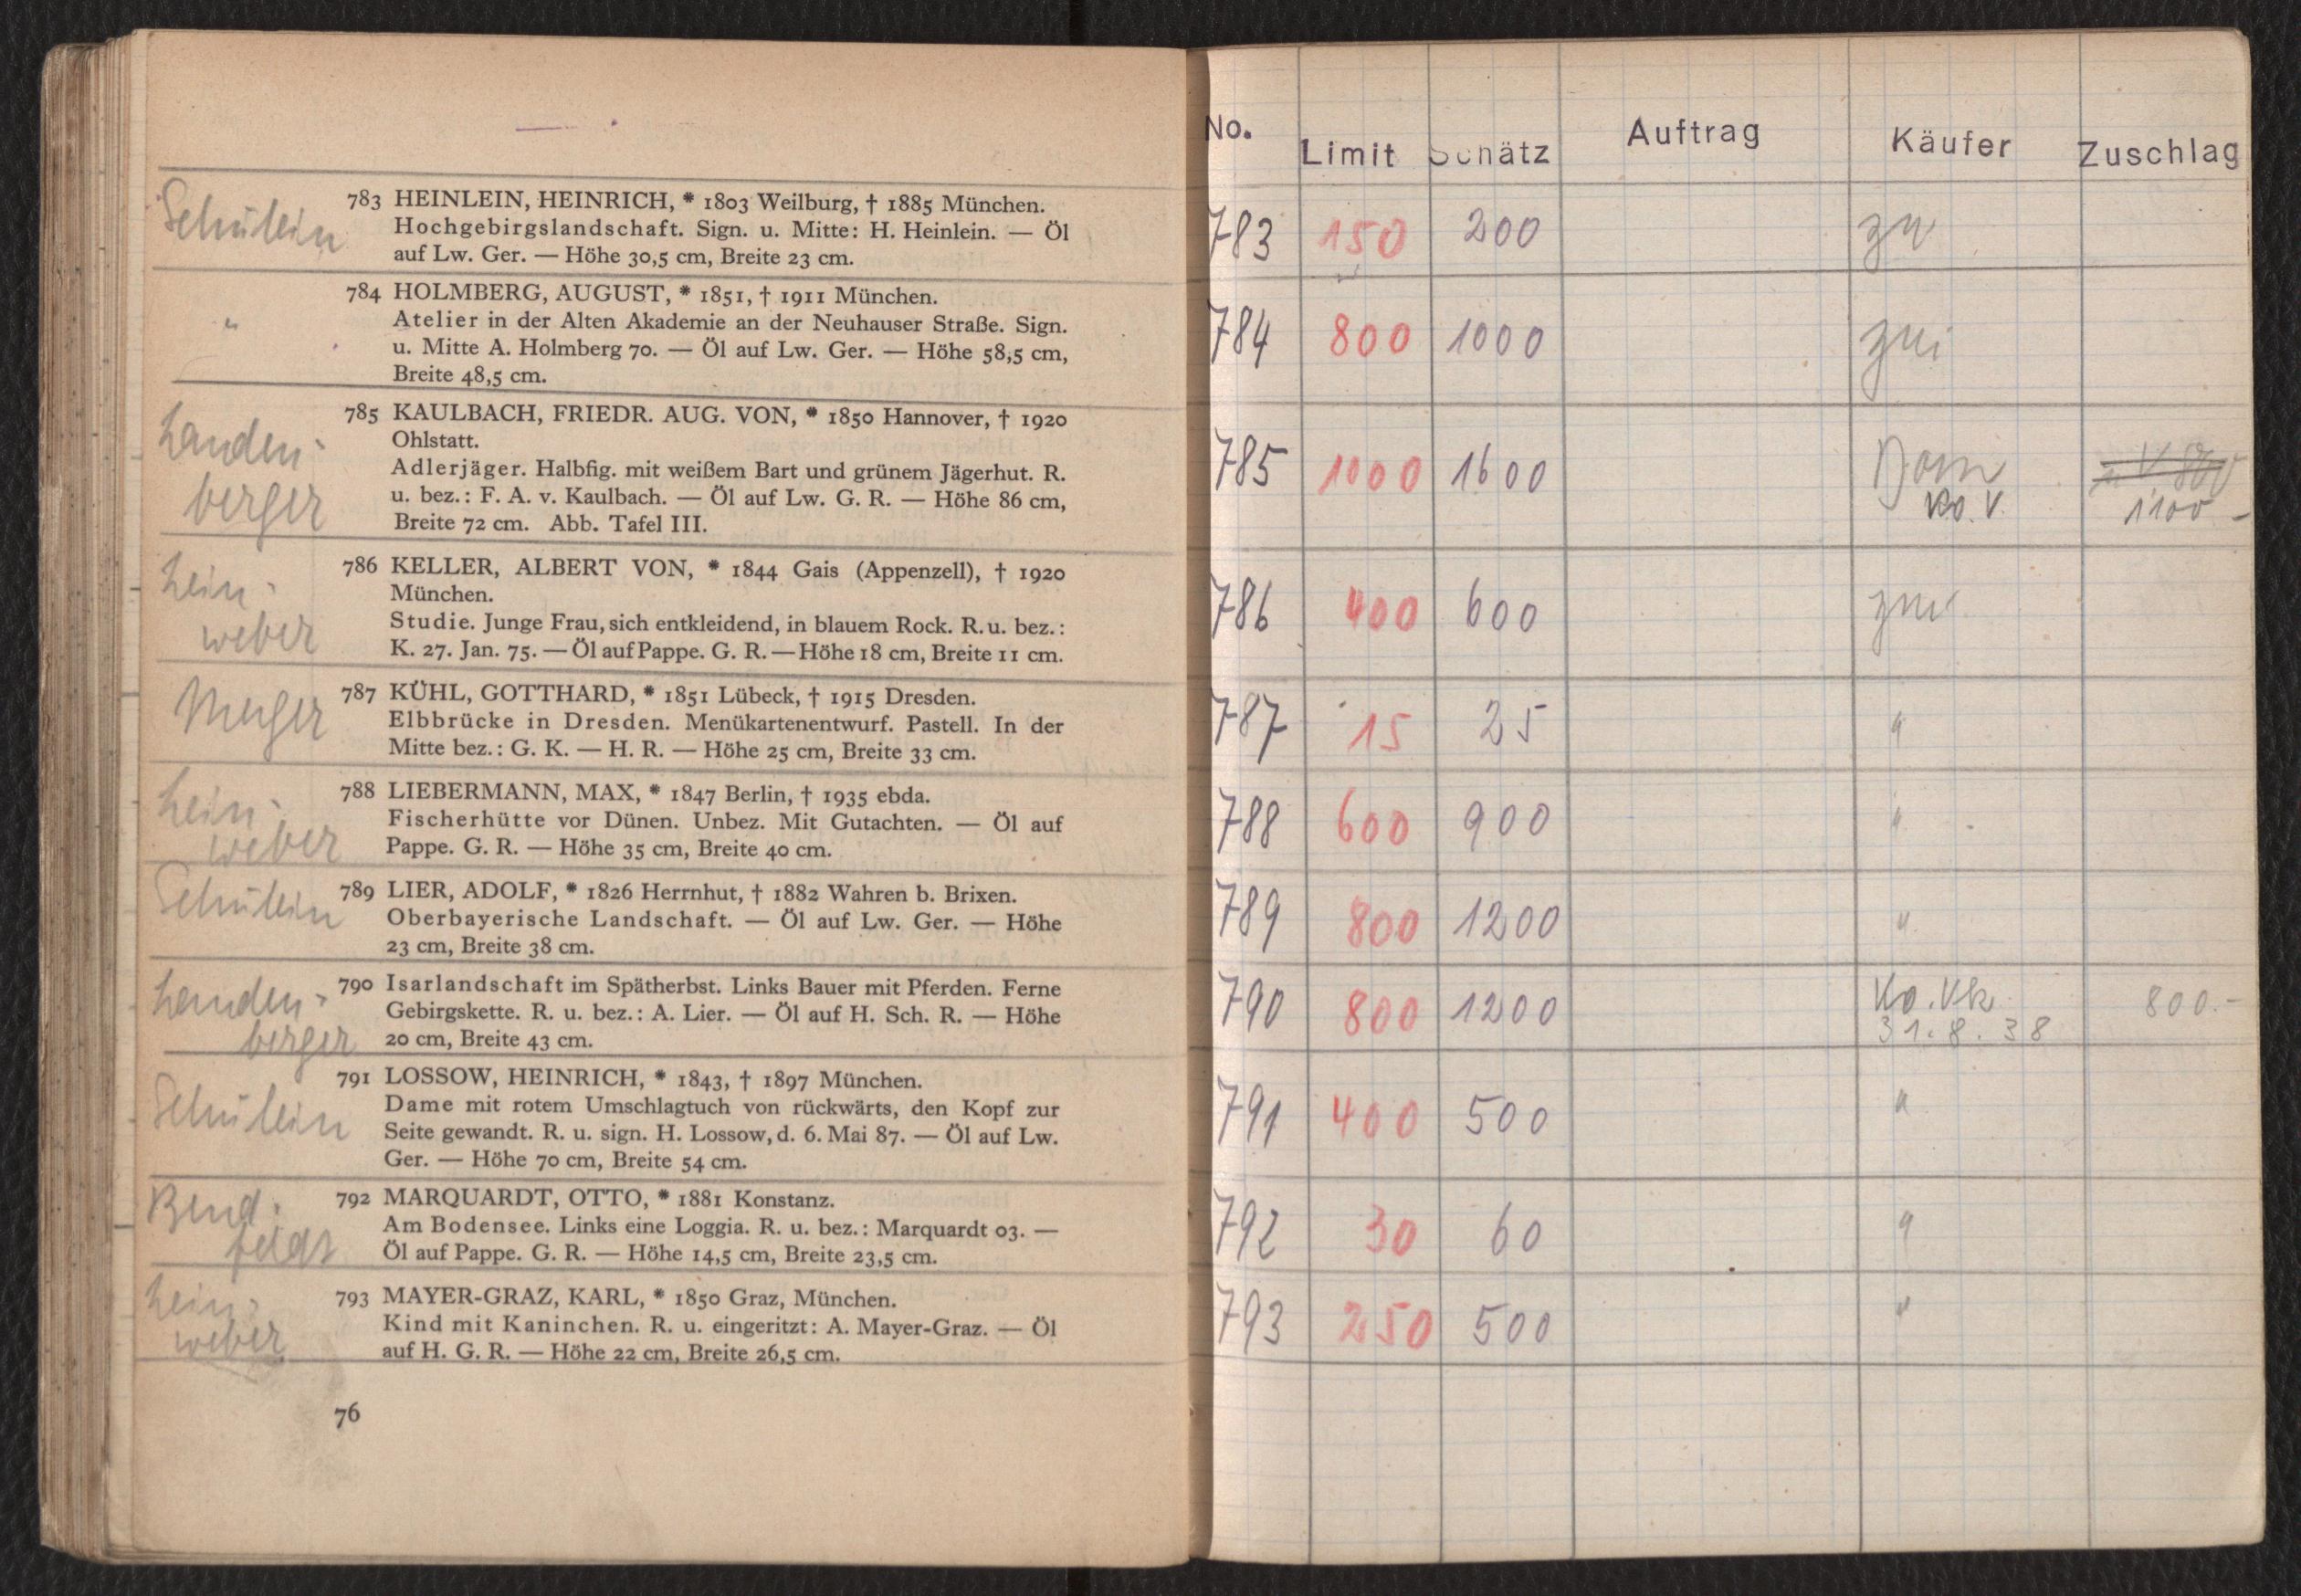 Schülein
783 HEINLEIN, HEINRICH, * 1803 Weilburg, † 1885 München.
Hochgebirgslandschaft. Sign. u. Mitte: H. Heinlein. — Öl
auf Lw. Ger. — Höhe 30,5 cm, Breite 23 cm.
"
784 HOLMBERG, AUGUST, * 1851, † 1911 München.
Atelier in der Alten Akademie an der Neuhauser Straße. Sign.
u. Mitte A. Holmberg 70. — Öl auf Lw. Ger. — Höhe 58,5 cm,
Breite 48,5 cm.
Landen-
berger
785 KAULBACH, FRIEDR. AUG. VON, * 1850 Hannover, † 1920
Ohlstatt.
Adlerjäger. Halbfig. mit weißem Bart und grünem Jägerhut. R.
u. bez.: F. A. v. Kaulbach. — Öl auf Lw. G. R. — Höhe 86 cm,
Breite 72 cm. Abb. Tafel III.
Lein-
weber
786 KELLER, ALBERT VON, * 1844 Gais (Appenzell), † 1920
München.
Studie. Junge Frau, sich entkleidend, in blauem Rock. R. u. bez.:
K. 27. Jan. 75. — Öl auf Pappe. G. R. — Höhe 18 cm, Breite 11 cm.
787 KÜHL, GOTTHARD, * 1851 Lübeck, † 1915 Dresden.
Elbbrücke in Dresden. Menükartenentwurf. Pastell. In der
Mitte bez.: G. K. — H. R. — Höhe 25 cm, Breite 33 cm.
Lein-
weber
788 LIEBERMANN, MAX, * 1847 Berlin, † 1935 ebda.
Fischerhütte vor Dünen. Unbez. Mit Gutachten. — Öl auf
Pappe. G. R. — Höhe 35 cm, Breite 40 cm.
Schülein
789 LIER, ADOLF, * 1826 Herrnhut, † 1882 Wahren b. Brixen.
Oberbayerische Landschaft. — Öl auf Lw. Ger. — Höhe
23 cm, Breite 38 cm.
Landen-
berger
790 Isarlandschaft im Spätherbst. Links Bauer mit Pferden. Ferne
Gebirgskette. R. u. bez.: A. Lier. — Öl auf H. Sch. R. — Höhe
20 cm, Breite 43 cm.
Schülein
791 LOSSOW, HEINRICH, * 1843, † 1897 München.
Dame mit rotem Umschlagtuch von rückwärts, den Kopf zur
Seite gewandt. R. u. sign. H. Lossow, d. 6. Mai 87. — Öl auf Lw.
Ger. — Höhe 70 cm, Breite 54 cm.
Bend-
feldt
792 MARQUARDT, OTTO, * 1881 Konstanz.
Am Bodensee. Links eine Loggia. R. u. bez.: Marquardt 03. —
Öl auf Pappe. G. R. — Höhe 14,5 cm, Breite 23,5 cm.
Lein-
weber
793 MAYER-GRAZ, KARL, * 1850 Graz, München.
Kind mit Kaninchen. R. u. eingeritzt: A. Mayer-Graz. — Öl
auf H. G. R. — Höhe 22 cm, Breite 26,5 cm.
76
No. Limit Schätz Auftrag Käufer Zuschlag
783 150 200
784 800 1000
785 1000 1600
Ko. V. 1100 -
786 400 600
787 15 25 "
788 600 900 "
789 800 1200 "
790 800 1200 Ko. Vk. 800.-
31.8.38
791 400 500 "
792 30 60 "
793 250 500 "